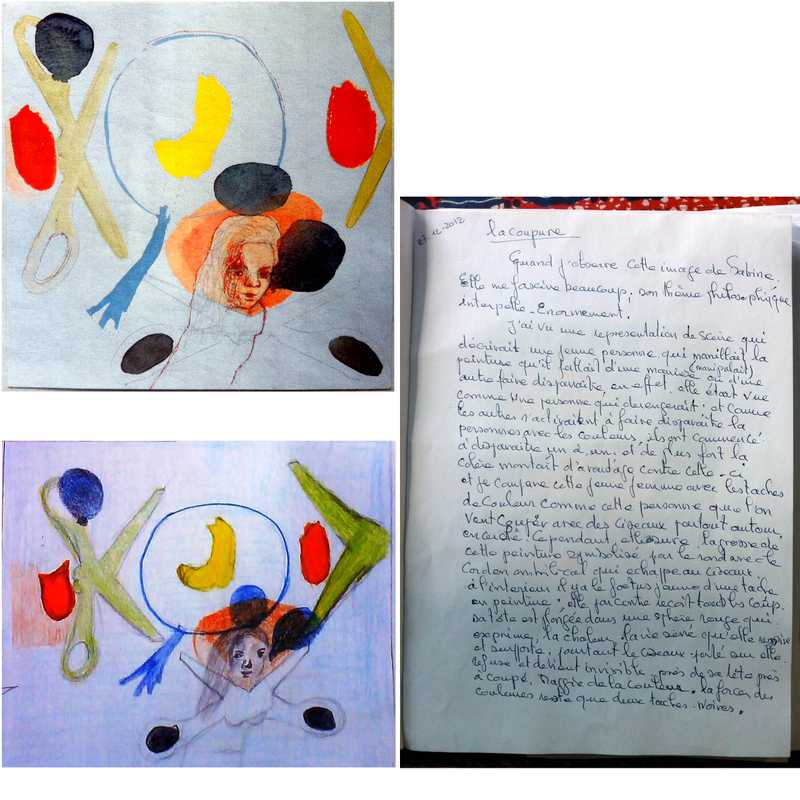 12-2012
la coupure
Quand j'observe cette image de Sabine.
Elle me fascine beaucoup, son thème philosophique
interpelle Enormement.
J'ai vu une representation de scène qui
décrivait une jeune personne qui manillait la
(manipulait)
peinture qu'il fallait d'une manière ou d'une
autre faire disparaître, en effet elle était vue
comme une personne qui derengerait. et comme
les autres s'activaient à faire disparaître la
personnes avec les couleurs, ils ont commencé
à disparaître un à un. et de plus fort la
colère montait d'avantage contre celle-ci
et je compare cette jeune femme avec les taches
de couleur comme cette personne que l'on
veut couper avec des ciseaux partout autour,
Cependant, elle la grosse de
cette peinture symbolisé par le rond avec le
cordon ombilical qui echappe au ciseaux
à l'interieur il y a le foetus jaune d'une tache
en peinture, elle par contre reçoit tous les coups.
sa tête est forgée dans une sphère rouge qui
exprime, la chaleur, la vie qu'elle
et supporte, pourtant le ciseaux porté sur elle
refuse et devient invisible près de sa tête près
à coupé. de la couleur. La force des
couleurs reste que deux taches noires.